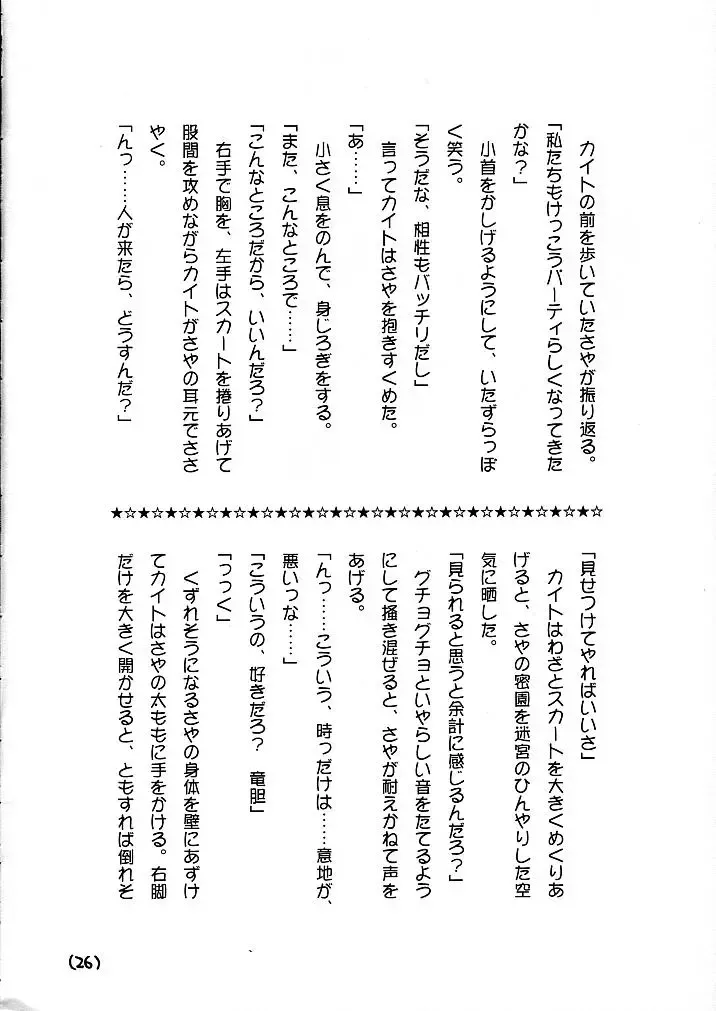 カイトの前を歩いていたさやが振り返る。
「私たちもけっこうパーティらしくなってきた
かな？」
小首をかしげるようにして、いたずらっぽ
く笑う。
「そうだな、相性もバッチリだし」
言ってカイトはさやを抱きすくめた。
「あ……」
小さく息をのんで、身じろぎをする。
「また、こんなところで……」
「こんなところだから、いいんだろ？」
右手で胸を、左手はスカートを捲りあげて
股間を攻めながらカイトがさやの耳元でささ
やく。
「んっ……人が来たら、どうすんだ？」
★☆★☆★☆★☆★☆★☆★☆★☆★☆★☆★☆★☆★☆★☆★☆★☆★☆★☆
「見せつけてやればいいさ」
カイトはわざとスカートを大きくめくりあ
げると、さやの密園を迷宮のひんやりした空
気に晒した。
「見られると思うと余計に感じるんだろ？」
グチョグチョといやらしい音をたてるよう
にして掻き混ぜると、さやが耐えかねて声を
あげる。
「んっ……こういう、時っだけは……意地が、
悪いっな……」
「こういうの、好きだろ？　竜胆」
「っっく」
くずれそうになるさやの身体を壁にあずけ
てカイトはさやの太ももに手をかける。右脚
だけを大きく開かせると、ともすれば倒れそ
(26)